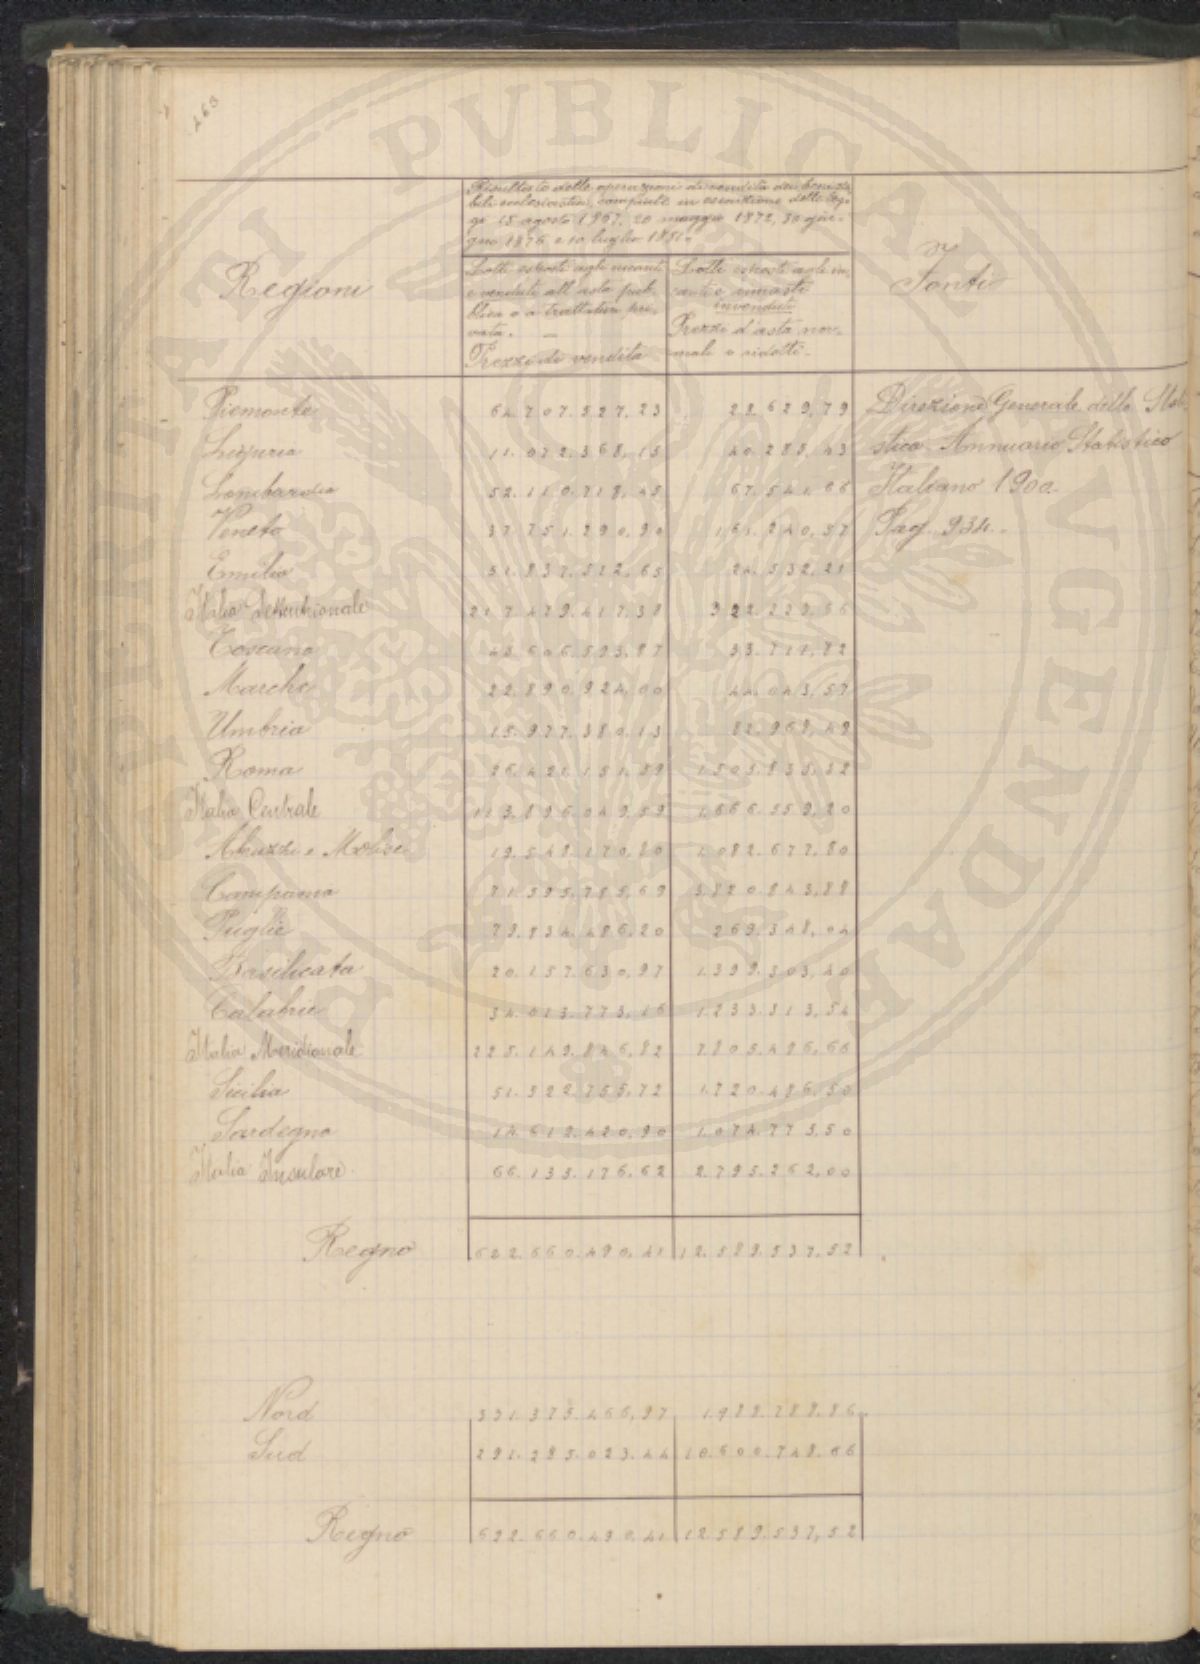 163
Regioni
Risultato delle operazioni di vendita dei beni sta-
bili ecclesiastici, compiute in esecuzione delle leg-
gi 15 agosto 1867, 20 maggio 1872, 30 giu-
gno 1876 e 10 luglio 1881.
Lotti esposti agli incanti
e venduti all'asta pub-
blica o a trattativa pri-
vata. —
Prezzi di vendita
Lotti esposti agli in-
canti e rimasti
invenduti
Prezzi d'asta nor-
mali o ridotti.
Fonti
Piemonte 64.707.527,23 22.629,79
Direzione Generale della Stati-
Liguria 11.072.368,15 40.285,43
stica. Annuario Statistico
Lombardia 52.110.718,45 67.541,66
Italiano 1900
Veneto 37.751.290,90 161.240,57
Pag. 934.
Emilia 51.837.512,65 24.532,21
Italia Settentrionale 217.479.417,38 322.229,66
Toscana 43.606.593,87 33.711,82
Marche 22.890.924,00 44.043,57
Umbria 15.977.380,13 82.968,49
Roma 26.421.151,59 1.505.835,32
Italia Centrale 113.896.049,59 1.666.559,20
Abruzzi e Molise 19.548.170,80 1.082.677,80
Campania 71.595.785,69 3.820.843,88
Puglie 79.834.486,20 269.348,04
Basilicata 20.157.630,97 1.399.303,40
Calabrie 34.013.773,16 1.233.313,54
Italia Meridionale 225.149.846,82 7.805.486,66
Sicilia 51.522.755,72 1.720.486,50
Sardegna 14.612.420,90 1.074.775,50
Italia Insulare 66.135.176,62 2.795.262,00
Regno 622.660.490,41 12.589.537,52
Nord 331.375.466,97 1.988.788,86
Sud 291.285.023,44 10.600.748,66
Regno 622.660.490,41 12.589.537,52